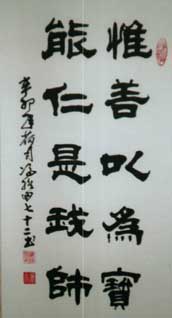 惟善以為寶
能仁是我師
辛卯年荷月七十二书